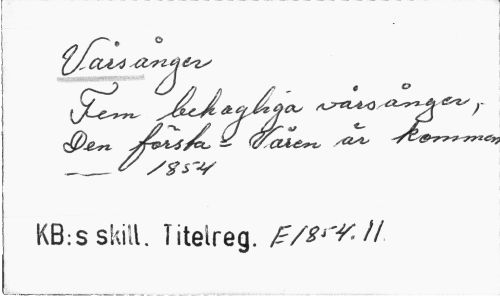 Vårsånger
Fem behagliga vårsånger,
Den första = Våren är kommen
— 1854
KB:s skill. Titelreg. E1854.11.